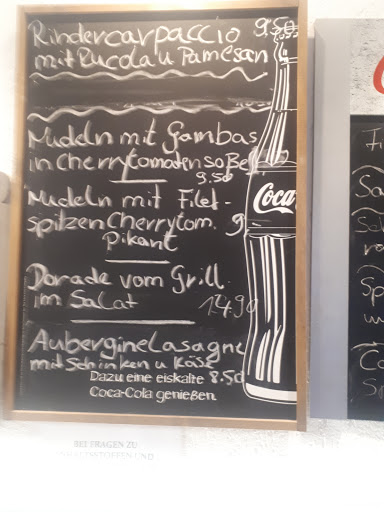 Rindercarpaccio 9.50
mit Rucola u Pamesan
Nudeln mit Gambas
in Cherrytomatensoße
9.50
Nudeln mit Filet-
spitzen Cherrytom. 9
Pikant
Dorade vom Grill
im Salat 14.90
Auberginelasagne
mit Schinken u Käse
Dazu eine eiskalte 8.50
Coca-Cola genießen.
Coca
BEI FRAGEN ZU
UND